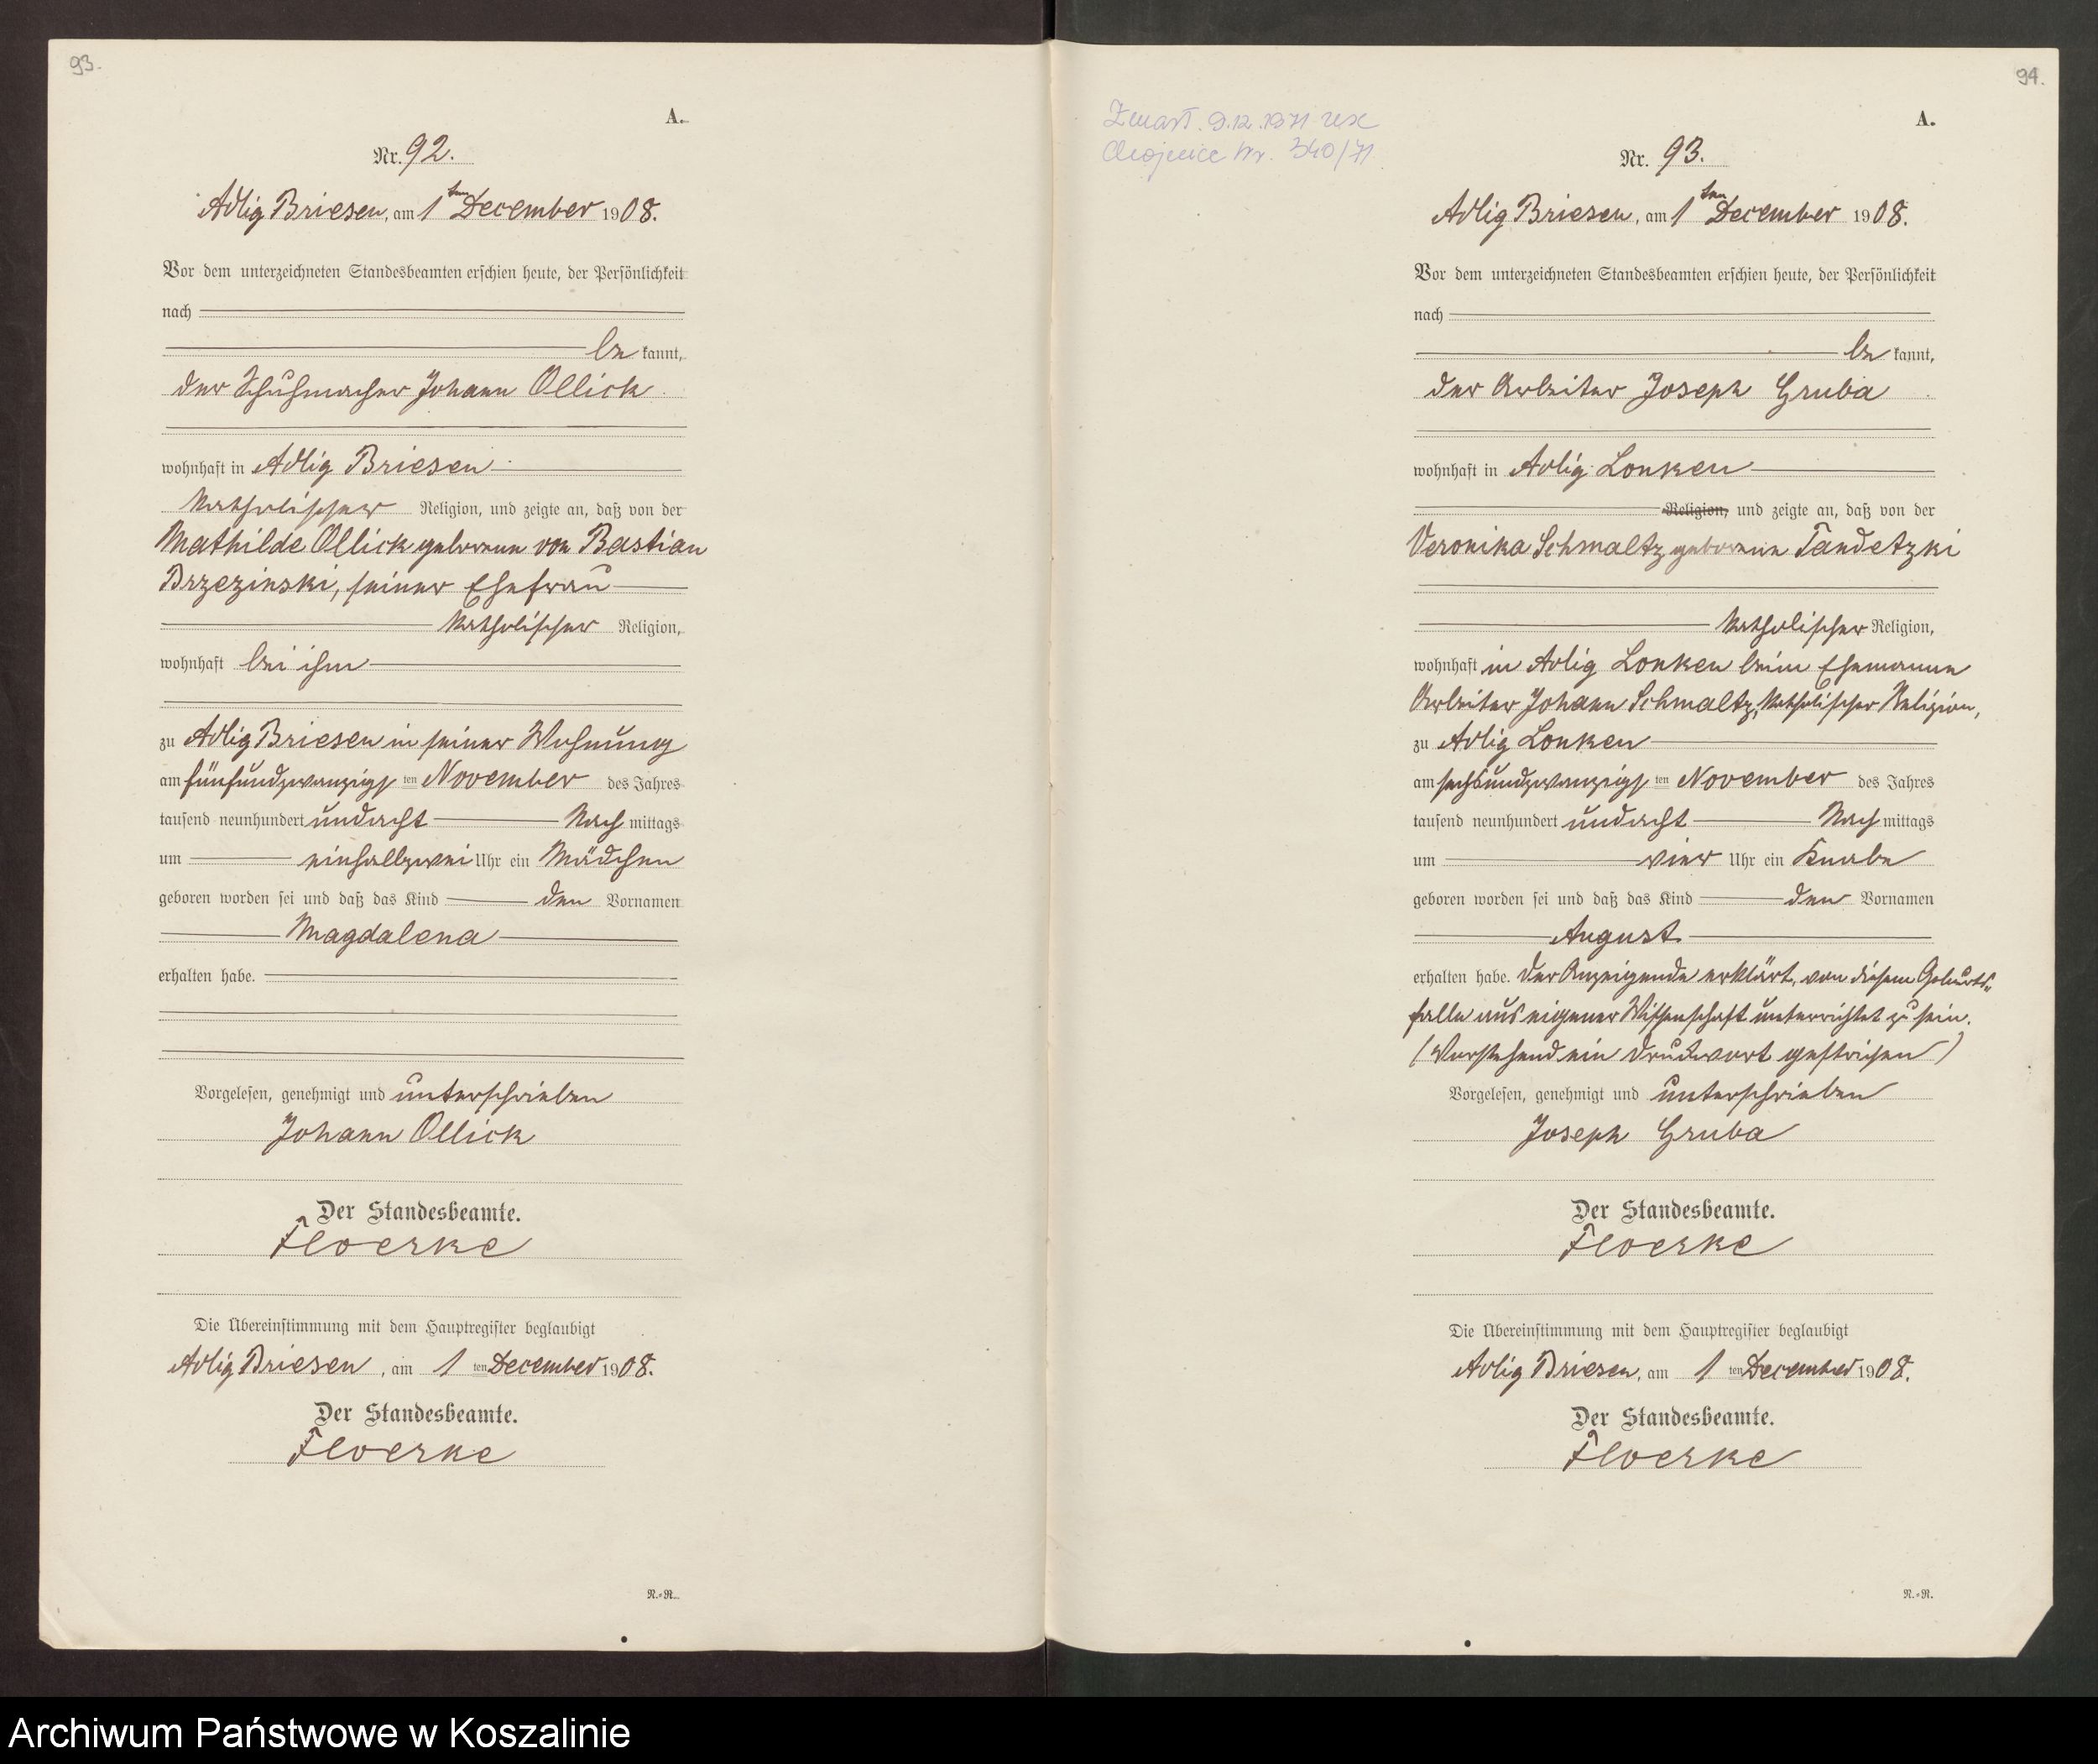 93.
A.
Nr. 92.
Adlig Briesen, am 1ten December 1908.
Vor dem unterzeichneten Standesbeamten erschien heute, der Persönlichkeit
nach
be kannt,
der Schuhmacher Johann Ollick
wohnhaft in Adlig Briesen
katholischer Religion, und zeigte an, daß von der
Mathilde Ollick geborenen von Bastian
Brzezinski, seiner Ehefrau
katholischer Religion,
wohnhaft bei ihm
zu Adlig Briesen in seiner Wohnung
am fünfundzwanzigsten November des Jahres
tausend neunhundert undacht Nach mittags
um einhalbzwei Uhr ein Mädchen
geboren worden sei und daß das Kind den Vornamen
Magdalena
erhalten habe.
Vorgelesen, genehmigt und unterschrieben
Johann Ollick
Der Standesbeamte.
Floerke
Die Übereinstimmung mit dem Hauptregister beglaubigt
Adlig Briesen, am 1 ten December 1908.
Der Standesbeamte.
Floerke
N.=R.
94.
Zmarł. 9.12.1971 usc
Chojnice Nr. 340/71
A.
Nr. 93.
Adlig Briesen, am 1ten December 1908.
Vor dem unterzeichneten Standesbeamten erschien heute, der Persönlichkeit
nach
be kannt,
der Arbeiter Joseph Gruba
wohnhaft in Adlig Lonken
Religion, und zeigte an, daß von der
Veronika Schmaltz geborenen Tandetzki
katholischer Religion,
wohnhaft in Adlig Lonken beim Ehemanne
Arbeiter Johann Schmaltz, katholischer Religion,
zu Adlig Lonken
am sechsundzwanzigsten November des Jahres
tausend neunhundert undacht Nach mittags
um vier Uhr ein Knabe
geboren worden sei und daß das Kind den Vornamen
August
erhalten habe. Der Anzeigende erklärt, von diesem Geburts=
falle aus eigener Wissenschaft unterrichtet zu sein.
(Vorstehend ein Druckwort gestrichen)
Vorgelesen, genehmigt und unterschrieben
Joseph Gruba
Der Standesbeamte.
Floerke
Die Übereinstimmung mit dem Hauptregister beglaubigt
Adlig Briesen, am 1 ten December 1908.
Der Standesbeamte.
Floerke
N.=R.
Archiwum Państwowe w Koszalinie